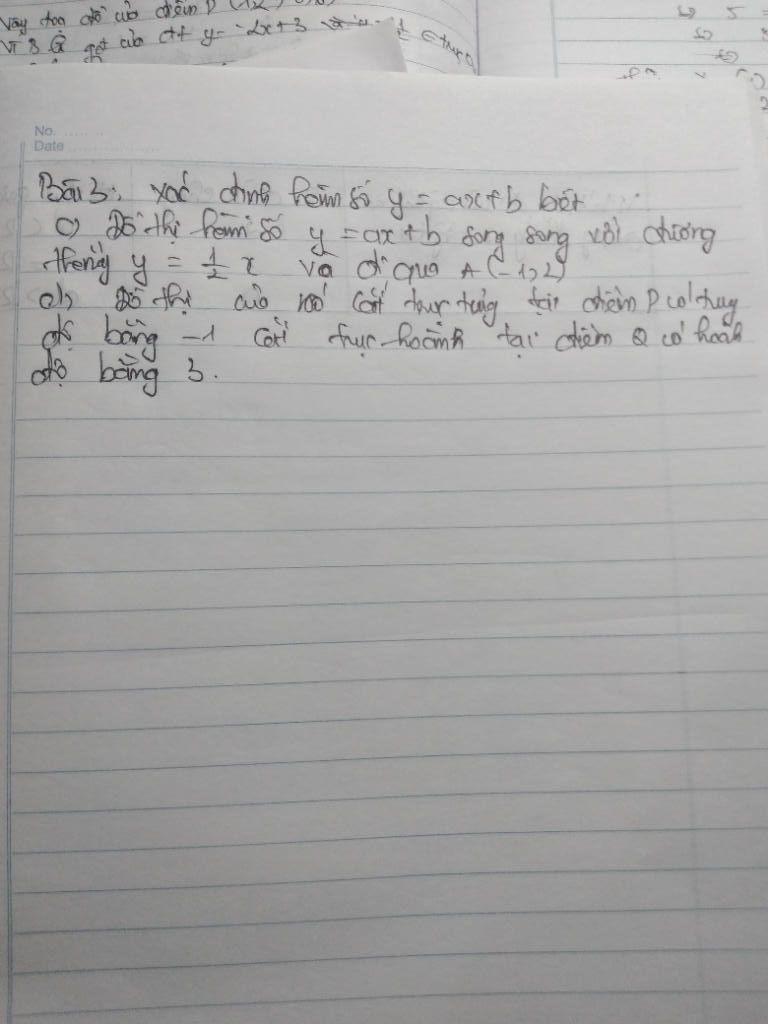 Vậy toạ độ của điểm P
Vì Q gđ của đt y = -2x+3
⇔ 5
No.
Date
Bài 3: xác định hàm số y = ax+b biết
c) Đồ thị hàm số y = ax+b song song với đường
thẳng y = 1/2 x và đi qua A(-1;2)
d) Đồ thị của nó cắt trục tung tại điểm P có tung
độ bằng -1 cắt trục hoành tại điểm Q có hoành
độ bằng 3.